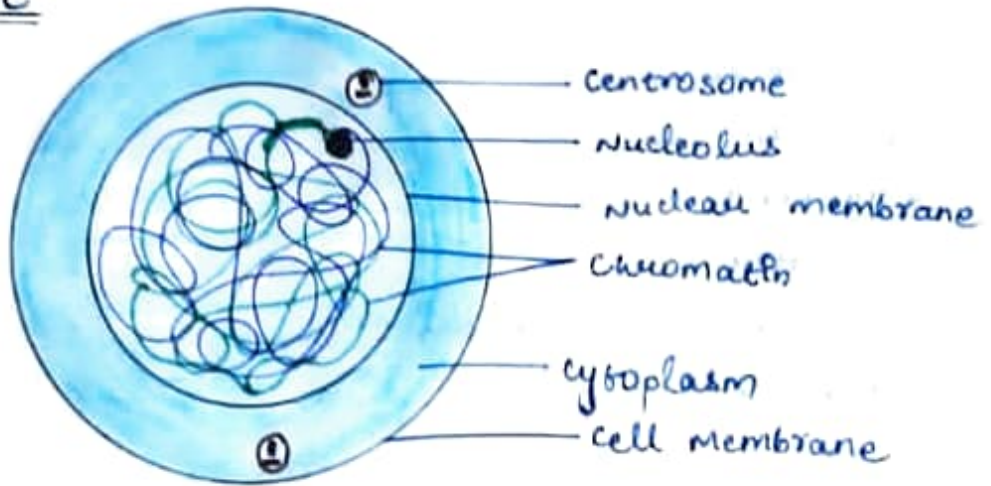 Centrosome
Nucleolus
Nuclear membrane
Chromatin
Cytoplasm
Cell Membrane